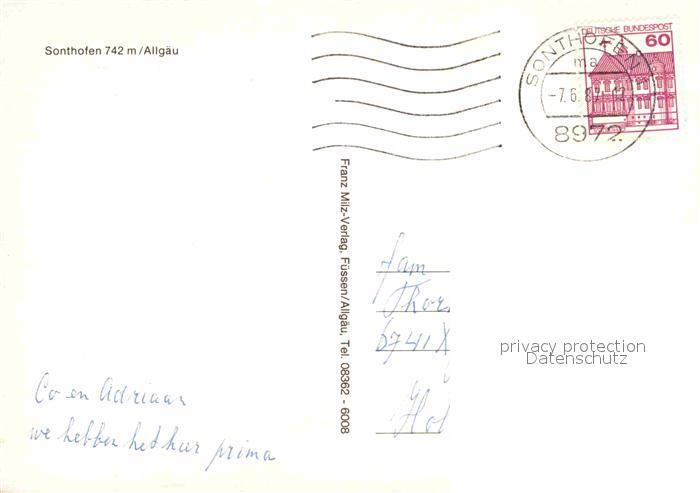 Sonthofen 742 m/Allgäu
DEUTSCHE BUNDESPOST
60
SONTHOFEN
ma
-7.6.8
8972
Franz Milz-Verlag, Füssen/Allgäu, Tel. 08362 - 6008
fam
Thor
6741 X
Hol
privacy protection
Datenschutz
Co en Adriaan
we hebben het hier prima